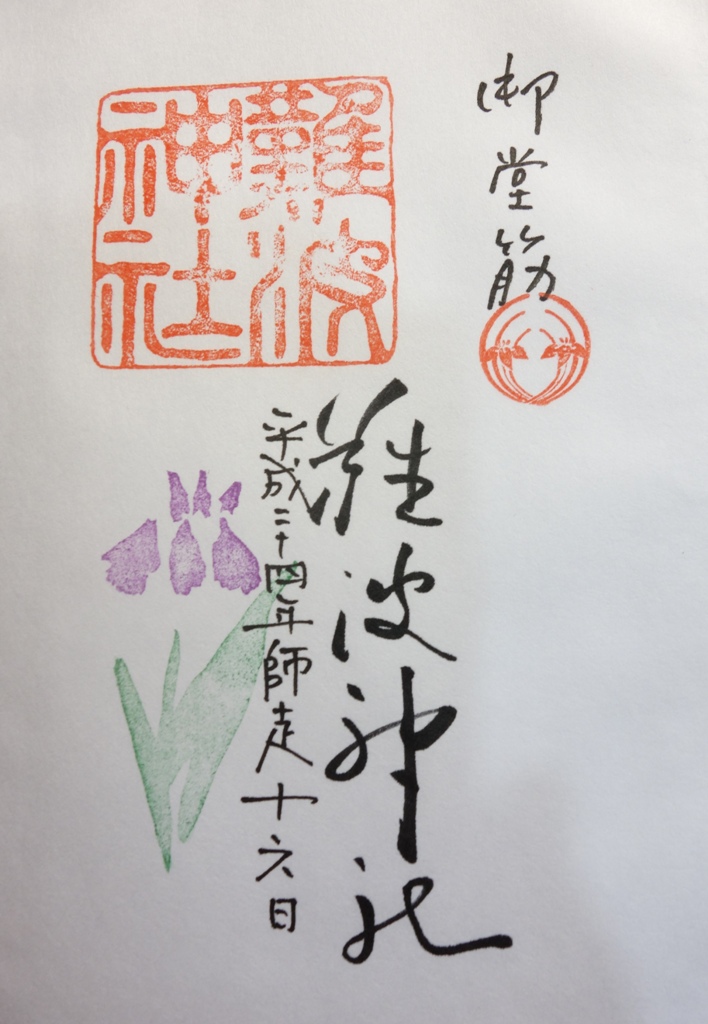 御堂筋
難波神社
難波神社
平成二十四年師走十六日